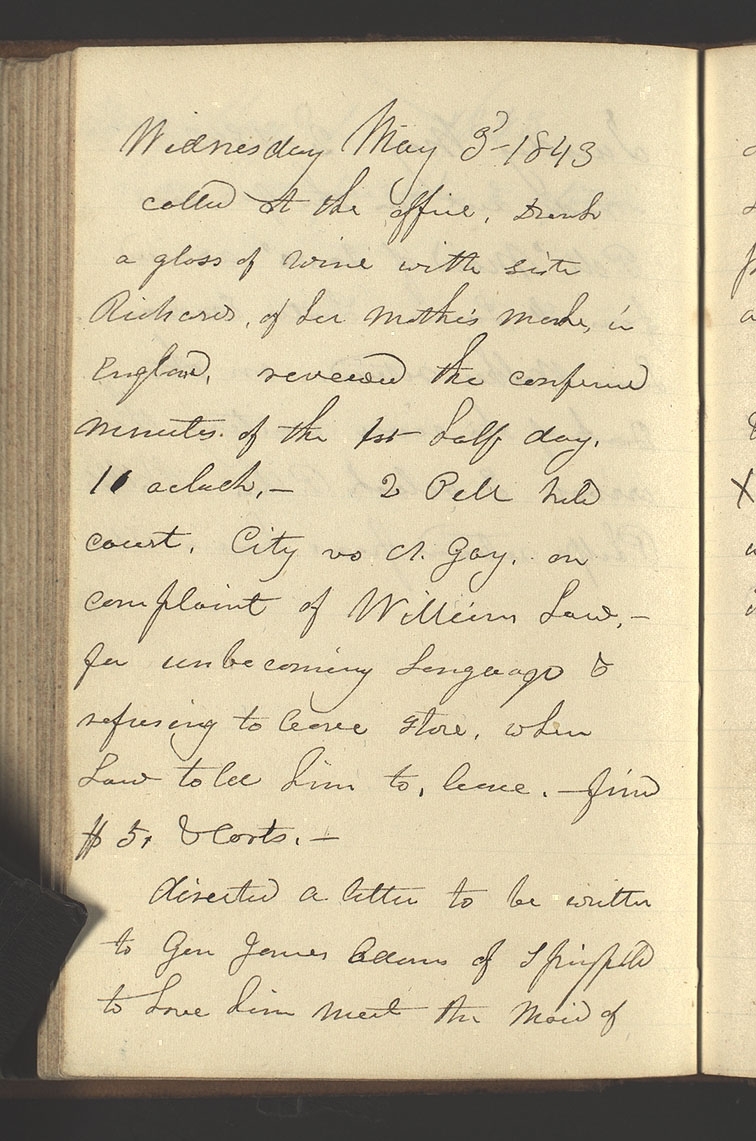 Wednesday May 3d- 1843
called at the office, Drank
a glass of wine with sister
Richards, of her mother's make, in
England. reviewed the conference
minutes. of the 1st half day.
10 oclock,— 2 P.M. held
court. City vs A. Gay. on
complaint of William Law,—
for unbecoming Language &
refusing to leave store, when
Law told him to, leave.— fined
$5, & Costs.—
directed a letter to be written
to Gen James Adams of Springfield
to have him meet the Maid of
X